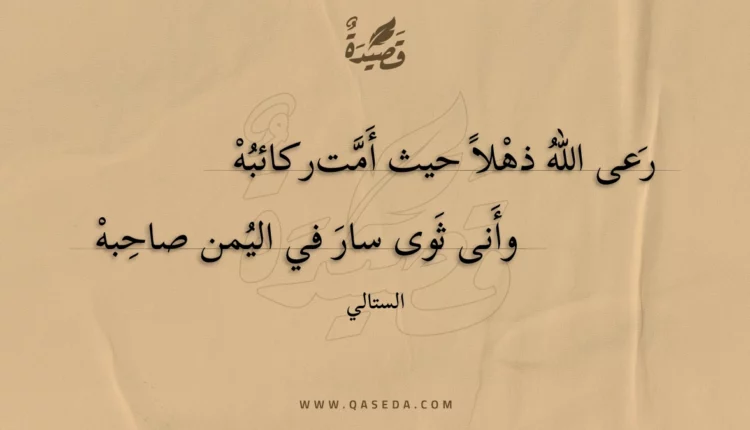 قَصِيْدَةٌ
رَعى اللهُ ذهْلاً حيث أَمَّت ركائبُهْ
وأَنى ثَوى سارَ في اليُمن صاحِبهْ
الستالي
WWW.QASEDA.COM